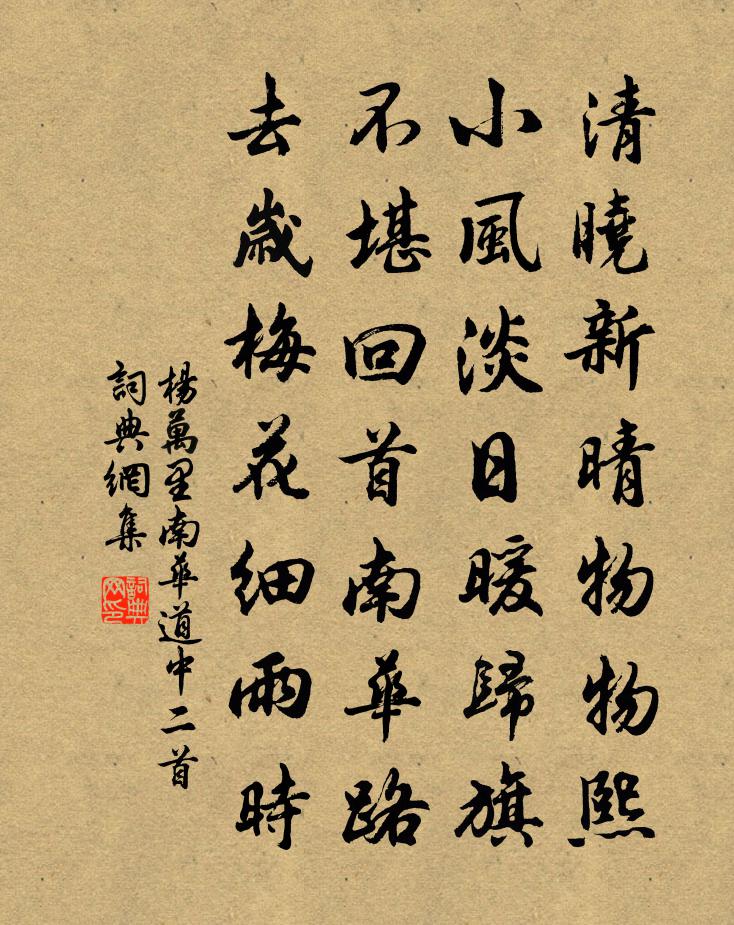 清曉新晴物物熙
小風淡日暖歸旗
不堪回首南華路
去歲梅花細雨時
楊萬里南華道中二首
詞典網集
詞典网印